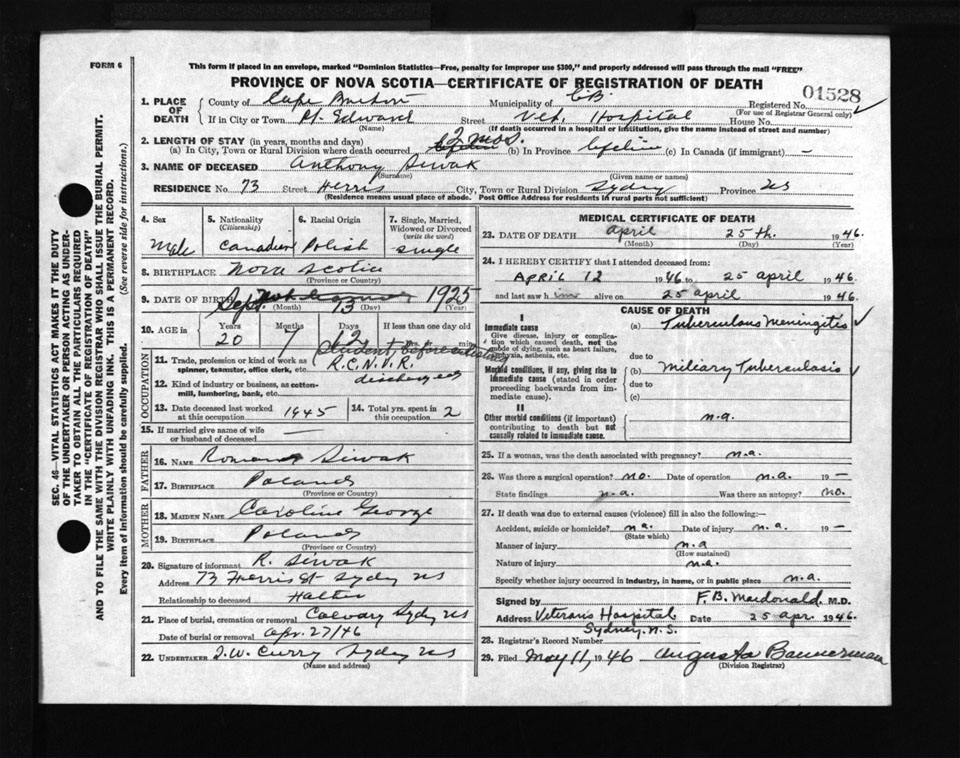 FORM 6
This form if placed in an envelope, marked "Dominion Statistics—Free, penalty for improper use $300," and properly addressed will pass through the mail "FREE"
PROVINCE OF NOVA SCOTIA—CERTIFICATE OF REGISTRATION OF DEATH
01528
1. PLACE OF DEATH County of Cape Breton Municipality of C.B. Registered No.
(For use of Registrar General only)
If in City or Town Pt. Edward Street Vet. Hospital House No.
(Name) (If death occurred in a hospital or institution, give the name instead of street and number)
2. LENGTH OF STAY (in years, months and days)
(a) In City, Town or Rural Division where death occurred 2 mos. (b) In Province Lifetime (c) In Canada (if immigrant) —
3. NAME OF DECEASED Anthony Siwak
(Surname) (Given name or names)
RESIDENCE No. 73 Street Ferris City, Town or Rural Division Sydney Province NS
(Residence means usual place of abode. Post Office Address for residents in rural parts not sufficient)
4. Sex
Male
5. Nationality (Citizenship)
Canadian
6. Racial Origin
Polish
7. Single, Married, Widowed or Divorced (write the word)
single
8. BIRTHPLACE Nova Scotia
(Province or Country)
9. DATE OF BIRTH Sept. 13 1925
(Month) (Day) (Year)
10. AGE in Years Months Days If less than one day old
20 7 12 hrs. min.
OCCUPATION
11. Trade, profession or kind of work as spinner, teamster, office clerk, etc. Student before enlisting
R.C.N.V.R.
discharged
12. Kind of industry or business, as cotton-mill, lumbering, bank, etc.
13. Date deceased last worked at this occupation 1945 14. Total yrs. spent in this occupation 2
15. If married give name of wife or husband of deceased —
FATHER
16. NAME Roman Siwak
17. BIRTHPLACE Poland
(Province or Country)
MOTHER
18. MAIDEN NAME Caroline George
19. BIRTHPLACE Poland
(Province or Country)
20. Signature of informant R. Siwak
Address 73 Ferris St Sydney NS
Relationship to deceased Father
21. Place of burial, cremation or removal Calvary Sydney NS
Date of burial or removal Apr. 27/46
22. UNDERTAKER J.W. Curry Sydney NS
(Name and address)
MEDICAL CERTIFICATE OF DEATH
23. DATE OF DEATH April 25th. 1946.
(Month) (Day) (Year)
24. I HEREBY CERTIFY that I attended deceased from:
APRIL 12 1946 to 25 april 1946.
and last saw him alive on 25 april 1946.
CAUSE OF DEATH
I
Immediate cause
Give disease, injury or complication which caused death, not the mode of dying, such as heart failure, asphyxia, asthenia, etc.
(a) Tuberculous Meningitis
due to
Morbid conditions, if any, giving rise to immediate cause (stated in order proceeding backwards from immediate cause).
(b) Miliary Tuberculosis
due to
(c)
II
Other morbid conditions (if important) contributing to death but not causally related to immediate cause.
n.a.
25. If a woman, was the death associated with pregnancy? n.a.
26. Was there a surgical operation? no. Date of operation n.a. 19 —
State findings n.a. Was there an autopsy? no.
27. If death was due to external causes (violence) fill in also the following:—
Accident, suicide or homicide? n.a. Date of injury n.a. 19 —
(State which)
Manner of injury n.a
(How sustained)
Nature of injury n.a.
Specify whether injury occurred in industry, in home, or in public place n.a.
Signed by F.B. Macdonald. M.D.
Address Veterans Hospital Date 25 apr 1946.
Sydney. N.S.
28. Registrar's Record Number
29. Filed May 11, 1946 Augusta Bannerman
(Division Registrar)
SEC. 46—VITAL STATISTICS ACT MAKES IT THE DUTY
OF THE UNDERTAKER OR PERSON ACTING AS UNDER-
TAKER TO OBTAIN ALL THE PARTICULARS REQUIRED
IN THE "CERTIFICATE OF REGISTRATION OF DEATH"
AND TO FILE THE SAME WITH THE DIVISION REGISTRAR WHO SHALL ISSUE THE BURIAL PERMIT.
WRITE PLAINLY WITH UNFADING INK. THIS IS A PERMANENT RECORD.
Every item of information should be carefully supplied. (See reverse side for instructions.)